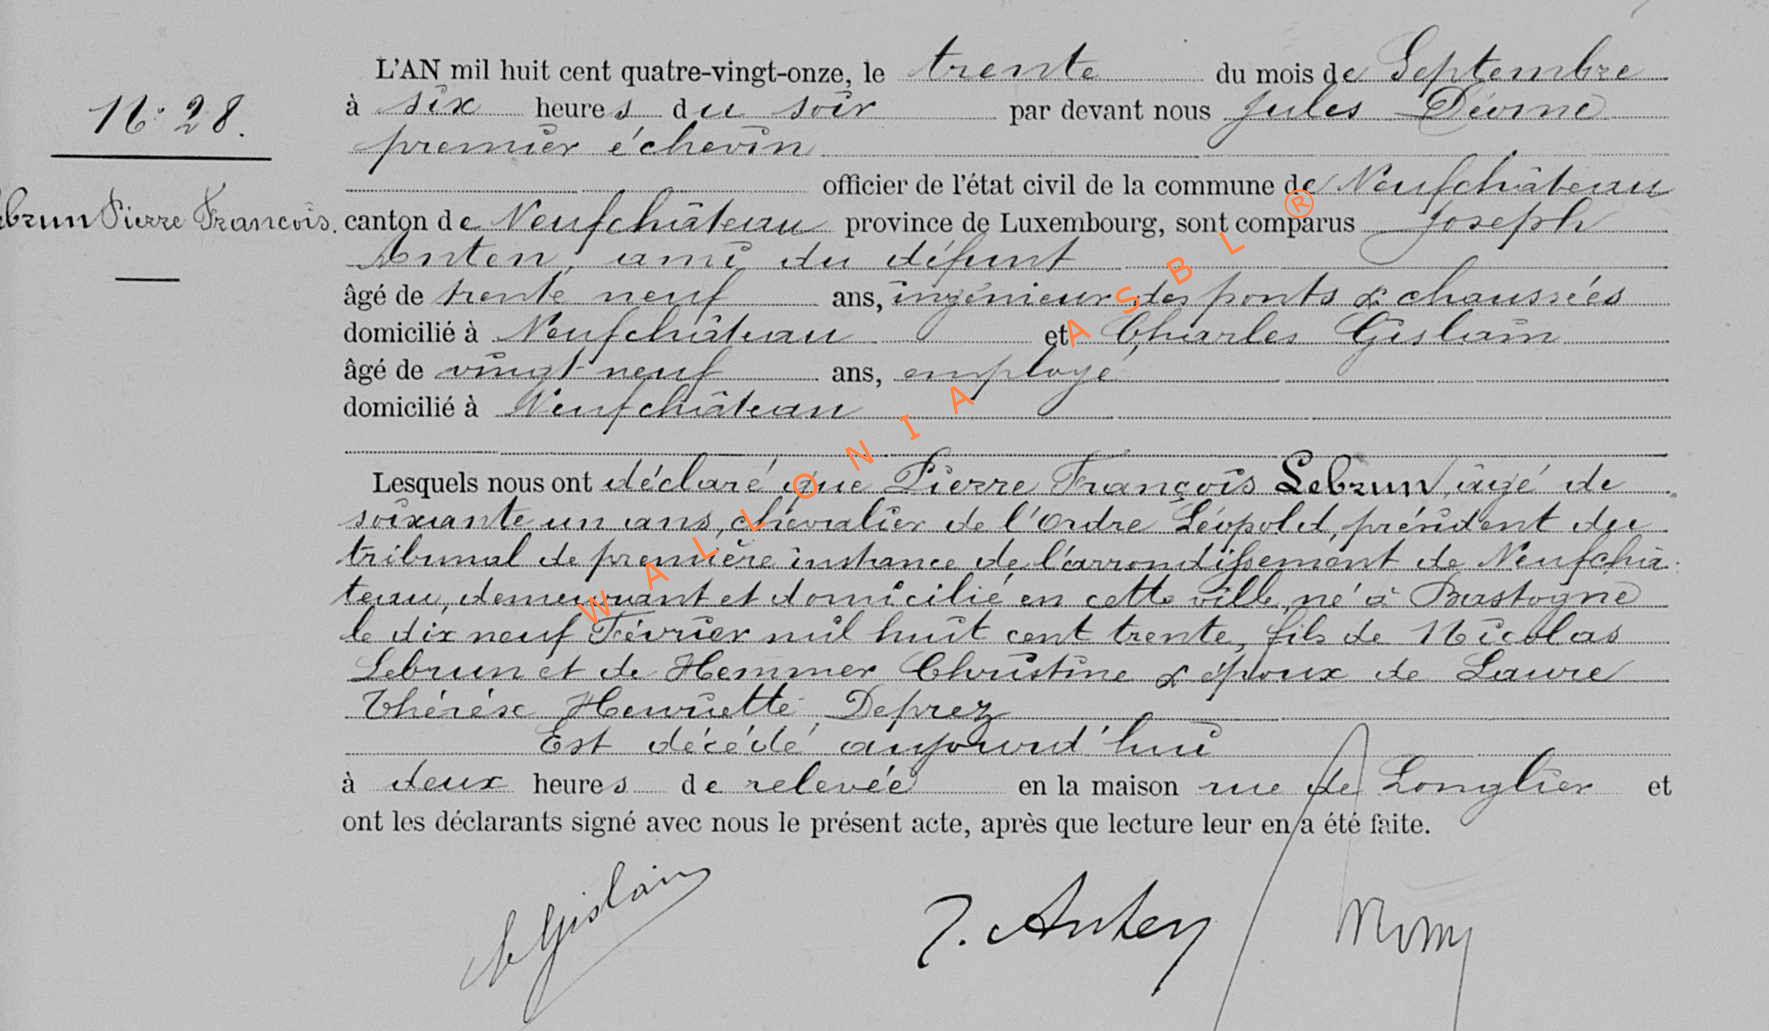 L'AN mil huit cent quatre-vingt-onze, le trente du mois de Septembre
N° 28.
à six heures du soir par devant nous Jules
premier échevin
officier de l'état civil de la commune de Neufchâteau
ebrun Pierre François.
canton de Neufchâteau province de Luxembourg, sont comparus Joseph
Anten, ami du défunt
âgé de trente neuf ans, ingénieur des ponts & chaussées
domicilié à Neufchâteau et Charles Gislain
âgé de vingt-neuf ans, employé
domicilié à Neufchâteau
Lesquels nous ont déclaré que Pierre François Lebrun, âgé de
soixante un ans, chevalier de l'Ordre Léopold, président du
tribunal de première instance de l'arrondissement de Neufchâ-
teau, demeurant et domicilié en cette ville, né à Bastogne
le dix neuf Février mil huit cent trente, fils de Nicolas
Lebrun et de Hemmer Christine & époux de Laure
Thérèse Henriette Deprez
Est décédé aujourd'hui
à deux heures de relevée en la maison rue de Longlier et
ont les déclarants signé avec nous le présent acte, après que lecture leur en a été faite.
Ch Gislain J. Anten
WALLONIA ASBL ®